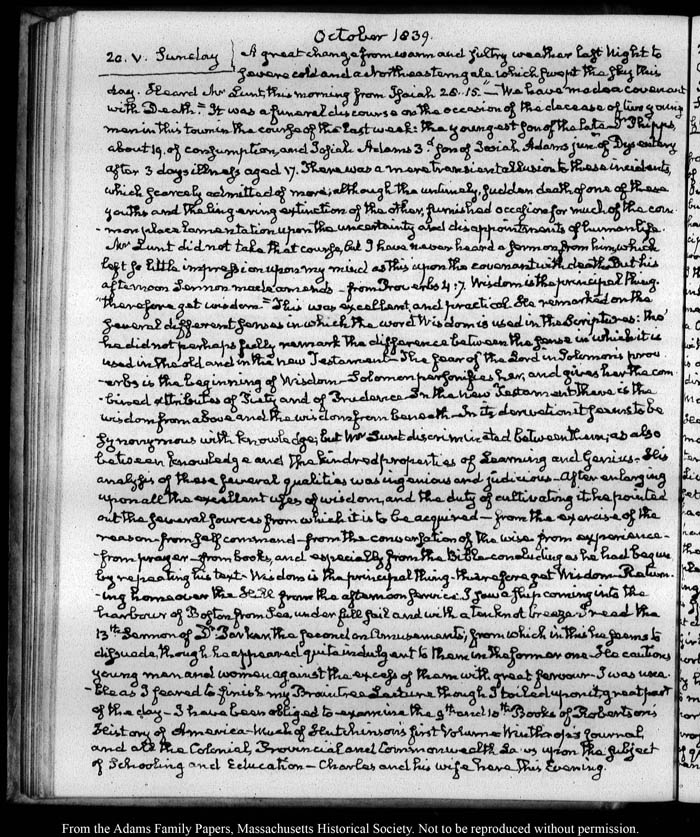 October 1839.
20. V. Sunday } A great change from warm and sultry weather last Night to
severe cold and a Northeastern gale which swept the sky this
day. Heard Mr Lunt, this morning from Isaiah 28.15. "We have made a covenant
with Death." It was a funeral discourse on the occasion of the decease of two young
men in this town in the course of the last week: the youngest son of the late Dr Phipps,
about 19. of consumption, and Josiah Adams 3d son of Josiah Adams junr of Dysentery
after 3 days illness aged 17. There was a mere transient allusion to these incidents,
which scarcely admitted of more; although the untimely, sudden death of one of these
youths and the lingering extinction of the other, furnished occasion for much of the com
-mon place lamentation upon the uncertainty and disappointments of human life.
Mr Lunt did not take that course, but I have never heard a sermon from him, which
left so little impression upon my mind as this upon the covenant with death. But his
afternoon Sermon made amends—from Proverbs 4:7. Wisdom is the principal thing.
therefore get wisdom" This was excellent, and practical. He remarked on the
several different senses in which the word Wisdom is used in the Scriptures: tho'
he did not perhaps fully remark the difference between the sense in which it is
used in the old and in the new Testament—The fear of the Lord in Solomon's prov
-erbs is the beginning of Wisdom—Solomon personifies her, and gives her the com
-bined attributes of Piety and of Prudence—In the new Testament there is the
wisdom from above and the wisdom from beneath—In its derivation it seems to be
synonymous with knowledge; but Mr Lunt discriminated between them; as also
between knowledge and the kindred properties of Learning and Genius—His
analysis of these several qualities was ingenious and judicious—After enlarging
upon all the excellent uses of wisdom, and the duty of cultivating it he pointed
out the several sources from which it is to be acquired—from the exercise of the
reason—from self command—from the conversation of the wise from experience—
-from prayer—from books, and especially from the Bible concluding as he had begun
by repeating his text—Wisdom is the principal thing—therefore get Wisdom—Return-
-ing home over the Hill from the afternoon service I saw a ship coming into the
harbour of Boston from Sea under full sail and with a ten knot breeze. I read the
13th Sermon of Dr Barker, the second on Amusements; from which in this he seems to
dissuade, though he appeared quite indulgent to them in the former one—He cautions
young men and women against the excess of them with great fervour—I was una
-ble as I feared to finish my Braintree Lecture though I toiled upon it great part
of the day—I have been obliged to examine the 9th and 10th Books of Robertson's
History of America—much of Hutchinson's first Volume Winthrop's Journal
and all the Colonial, Provincial and Commonwealth Laws upon the subject
of Schooling and Education—Charles and his wife here this Evening.
From the Adams Family Papers, Massachusetts Historical Society. Not to be reproduced without permission.